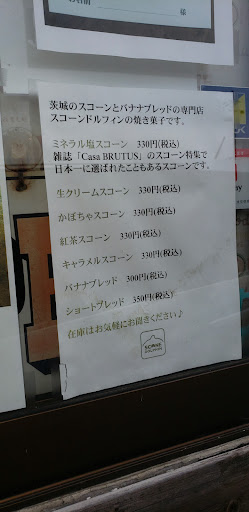 様
茨城のスコーンとバナナブレッドの専門店
スコーンドルフィンの焼き菓子です。
ミネラル塩スコーン 330円(税込)
雑誌「Casa BRUTUS」のスコーン特集で
日本一に選ばれたこともあるスコーンです。
生クリームスコーン 330円(税込)
かぼちゃスコーン 330円(税込)
紅茶スコーン 330円(税込)
キャラメルスコーン 330円(税込)
バナナブレッド 300円(税込)
ショートブレッド 350円(税込)
在庫はお気軽にお聞きください♪
SCONE
DOLPHIN